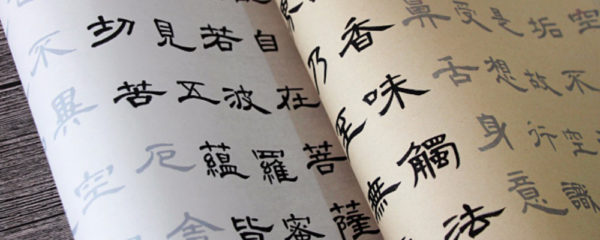 空
垢不
是故空
受想行識
鼻舌身意
香味觸法
乃至無
自在菩薩
若波羅蜜
見五蘊皆
切苦厄舍
不異空